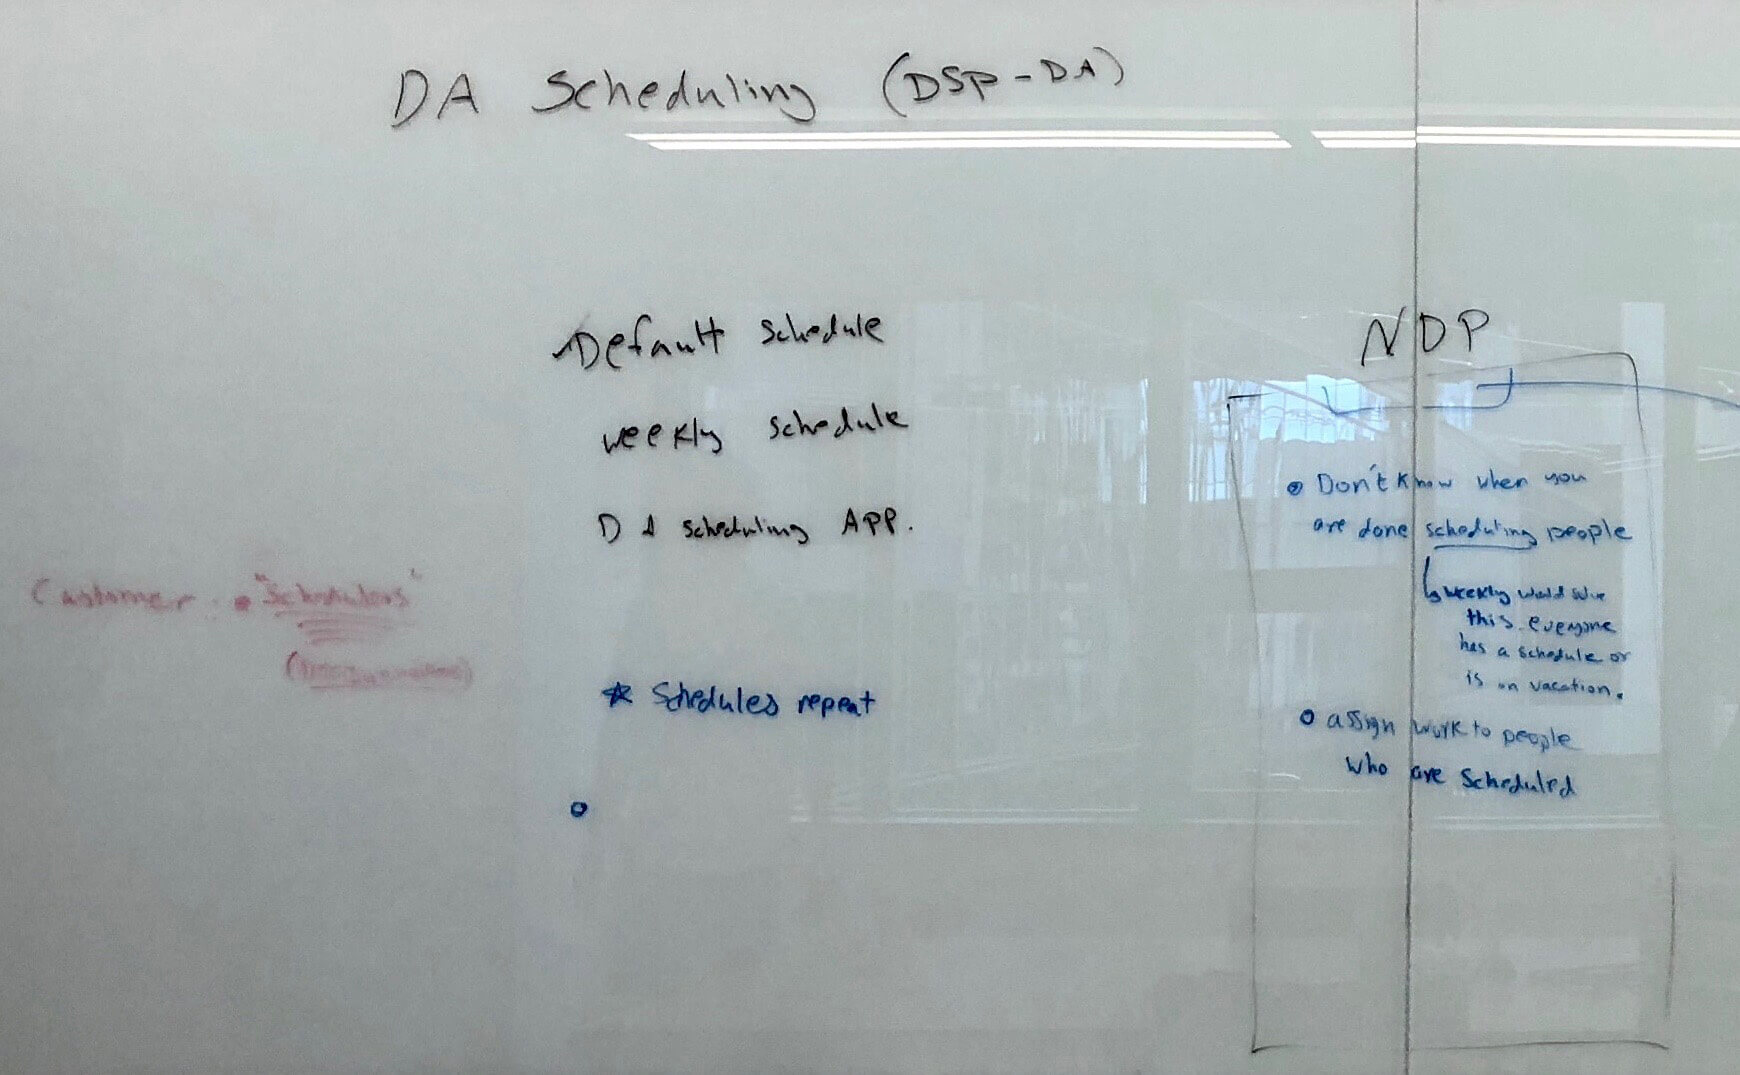 DA Scheduling (DSP-DA)
Default schedule
weekly schedule
DA scheduling APP.
Customer : "Schedulers"
* Schedules repeat
NDP
Don't know when you
are done scheduling people
weekly would solve
this. everyone
has a schedule or
is on vacation.
assign work to people
who are scheduled